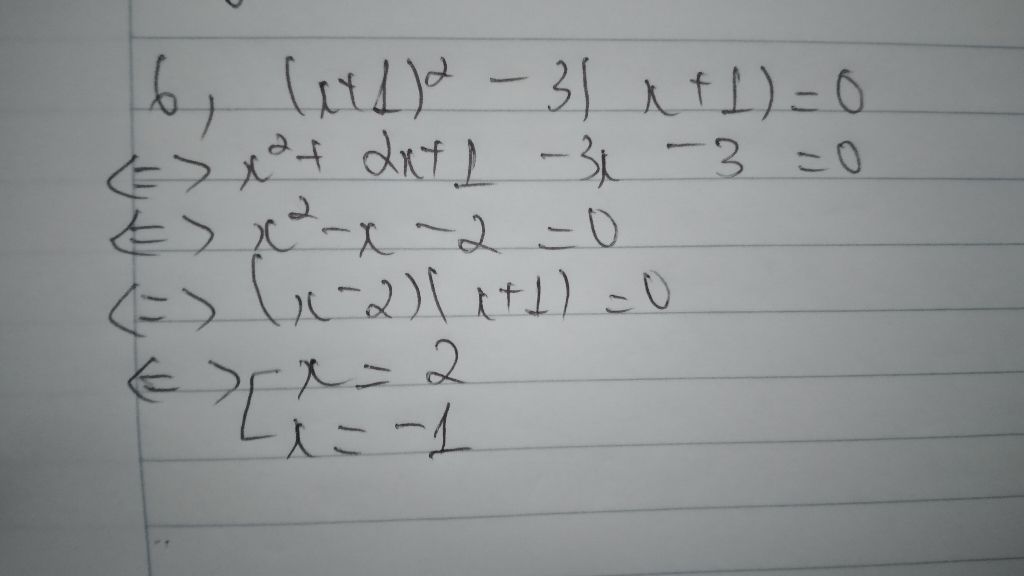 6, (x+1)² - 3(x+1) = 0
<=> x² + 2x + 1 - 3x - 3 = 0
<=> x² - x - 2 = 0
<=> (x - 2)(x + 1) = 0
<=> [ x = 2
x = -1